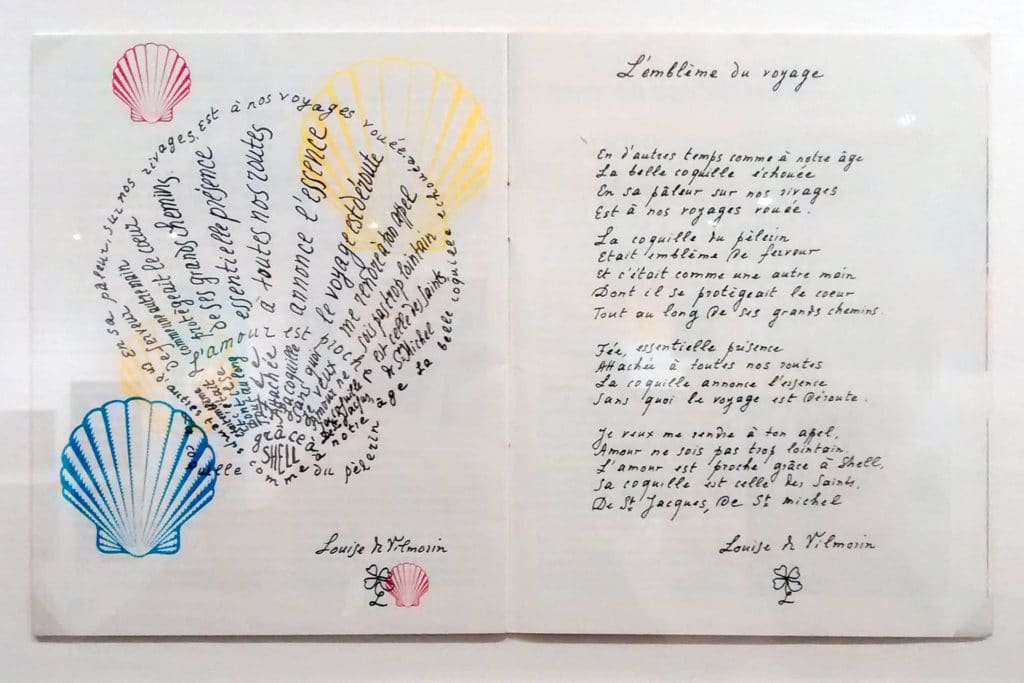 En sa pâleur, sur nos rivages, est à nos voyages vouée
comme une autre main
protégeait le cœur
de ses grands chemins.
essentielle présence
à toutes nos routes
annonce l'essence
le voyage est déroute
me rendre à ton apel
sois pas trop lointain
L'amour est proche
grâce à
SHELL
est celle des Saints
St Michel
notre âge La belle coquille échouée
du pèlerin
Louise de Vilmorin
L
L'emblème du voyage
En d'autres temps comme à notre âge
La belle coquille échouée
En sa pâleur sur nos rivages
Est à nos voyages vouée.
La coquille du pèlerin
Etait emblème de ferveur
Et c'était comme une autre main
Dont il se protègeait le coeur
Tout au long de ses grands chemins.
Fée, essentielle présence
Attachée à toutes nos routes
La coquille annonce l'essence
Sans quoi le voyage est déroute.
Je veux me rendre à ton apel,
Amour ne sois pas trop lointain,
L'amour est proche grâce à Shell,
Sa coquille est celle des Saints,
De St Jacques, De St Michel
Louise de Vilmorin
L